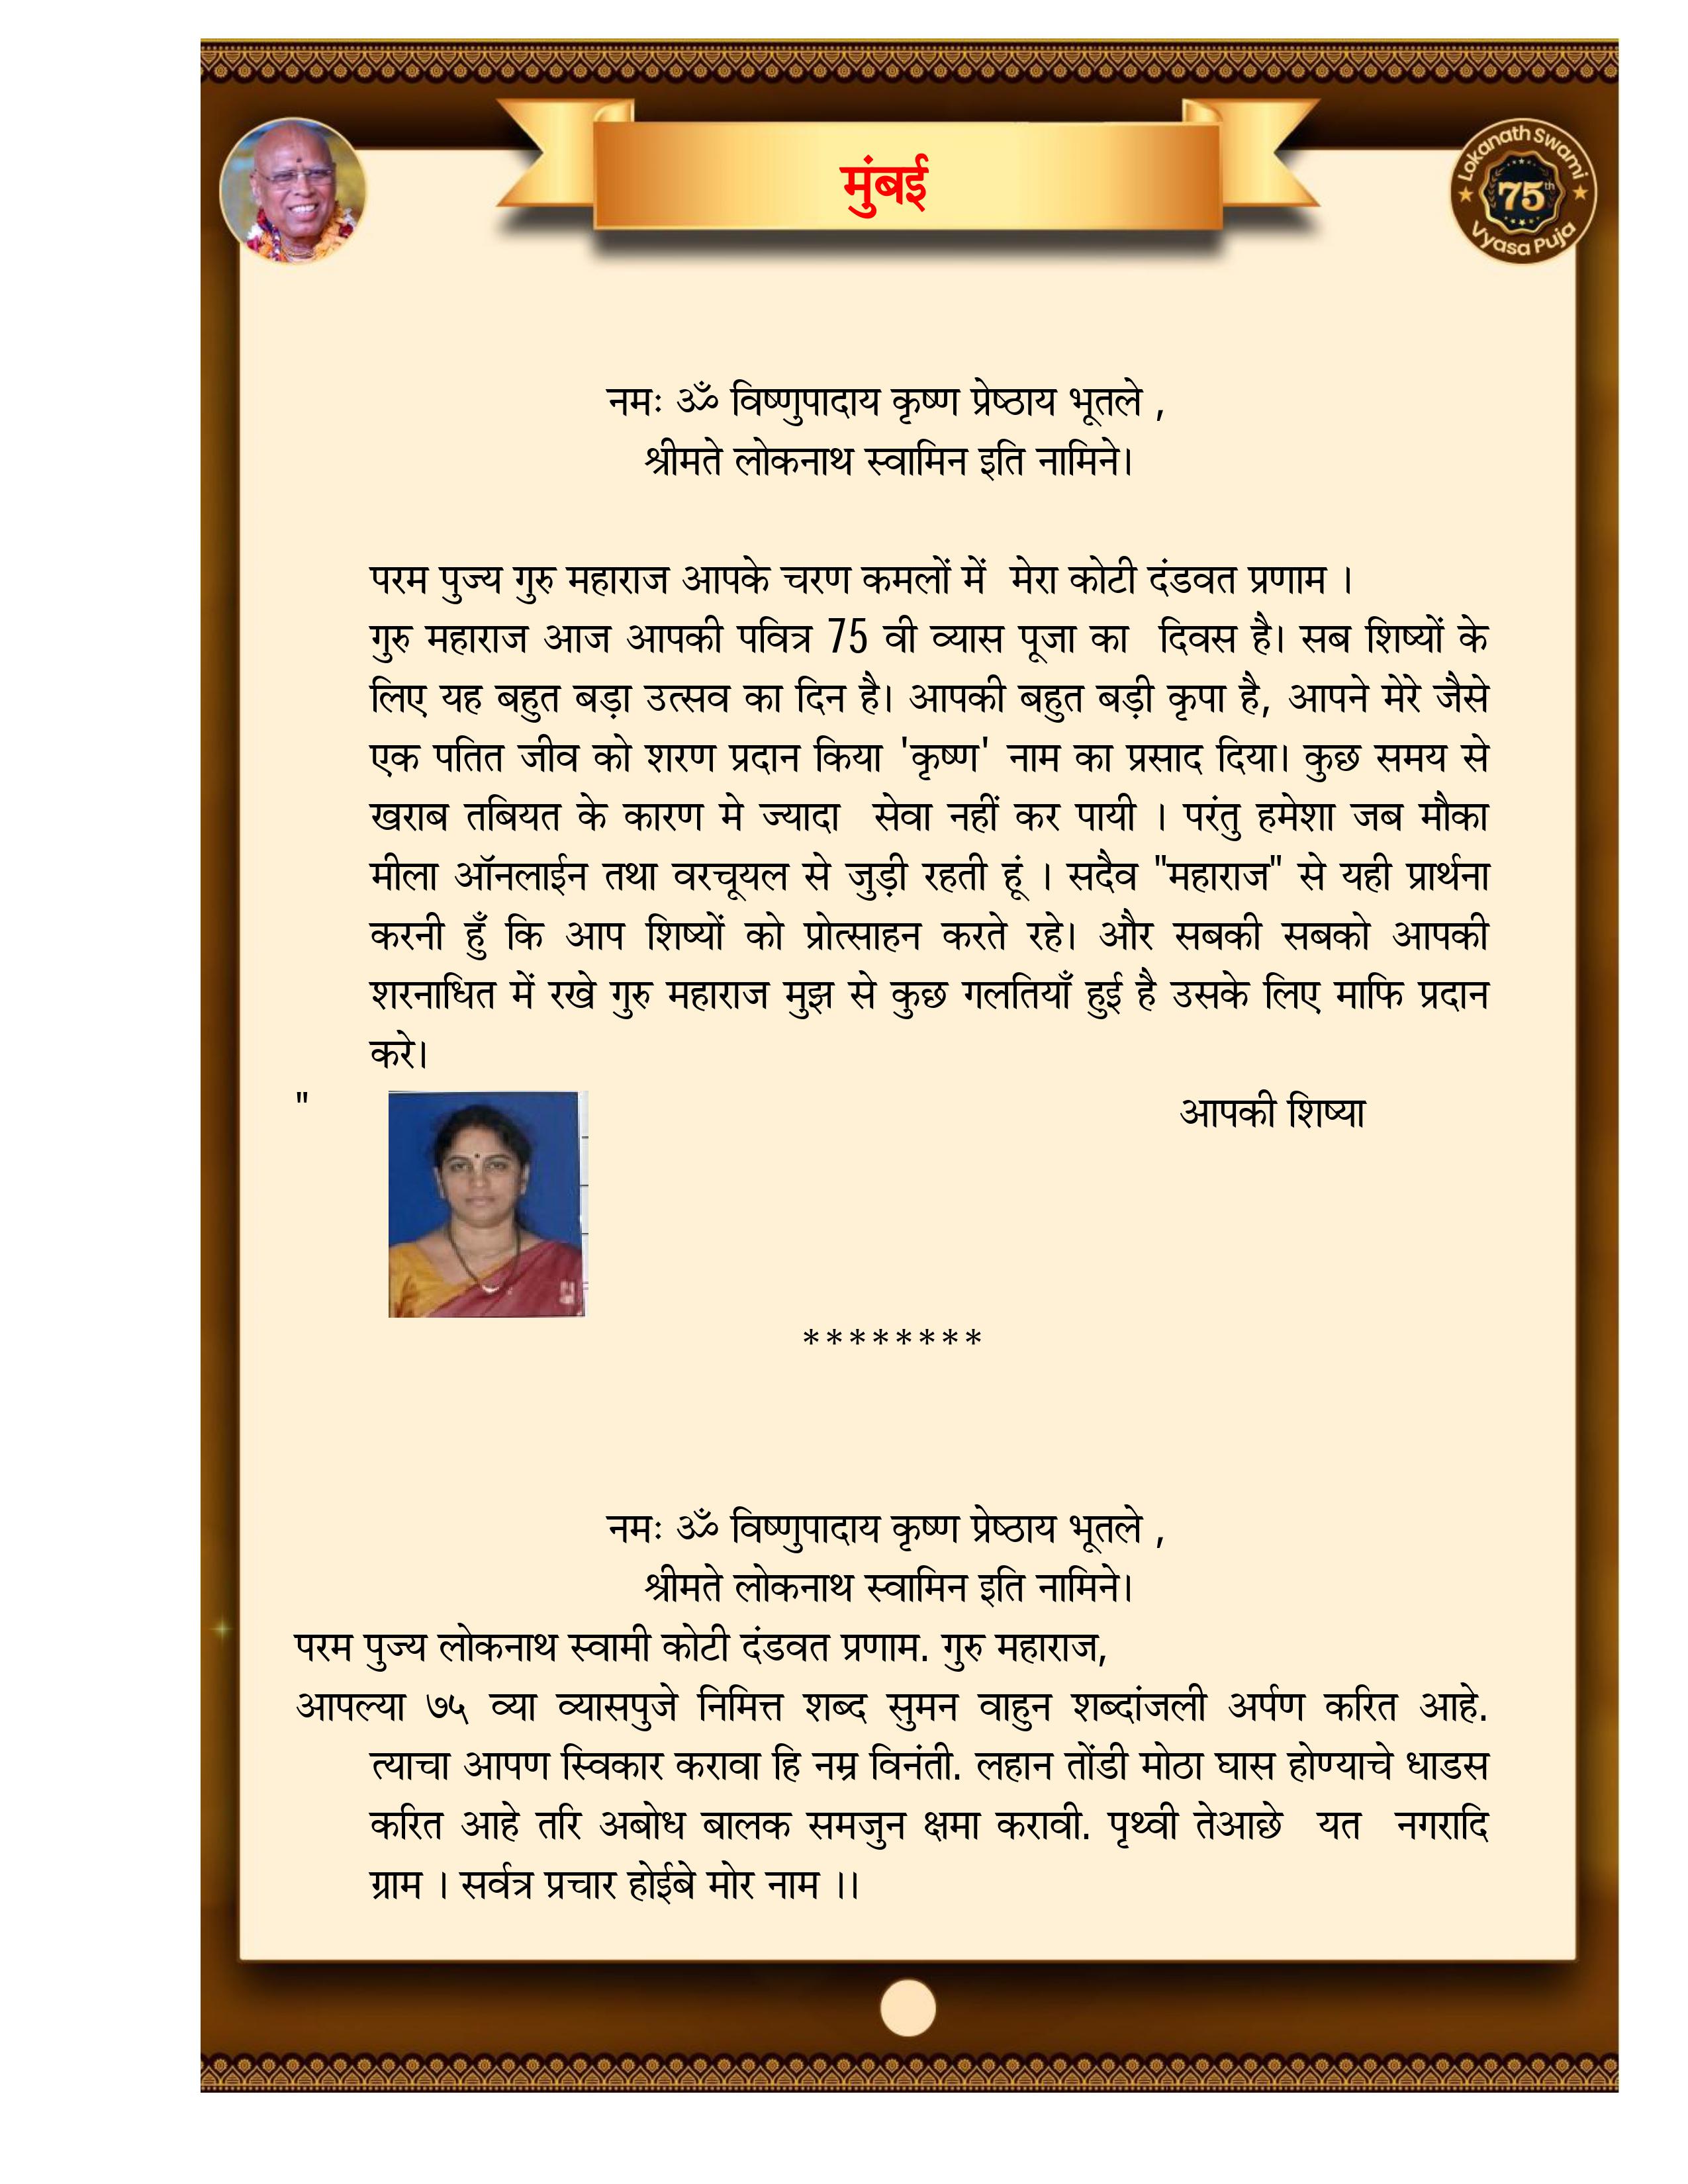 मुंबई
Lokanath Swami
75th
Vyasa Puja
नमः ॐ विष्णुपादाय कृष्ण प्रेष्ठाय भूतले ,
श्रीमते लोकनाथ स्वामिन इति नामिने।
परम पुज्य गुरु महाराज आपके चरण कमलों में मेरा कोटी दंडवत प्रणाम ।
गुरु महाराज आज आपकी पवित्र 75 वी व्यास पूजा का दिवस है। सब शिष्यों के
लिए यह बहुत बड़ा उत्सव का दिन है। आपकी बहुत बड़ी कृपा है, आपने मेरे जैसे
एक पतित जीव को शरण प्रदान किया 'कृष्ण' नाम का प्रसाद दिया। कुछ समय से
खराब तबियत के कारण मे ज्यादा सेवा नहीं कर पायी । परंतु हमेशा जब मौका
मीला ऑनलाईन तथा वरचूयल से जुड़ी रहती हूं । सदैव "महाराज" से यही प्रार्थना
करनी हुँ कि आप शिष्यों को प्रोत्साहन करते रहे। और सबकी सबको आपकी
शरनाधित में रखे गुरु महाराज मुझ से कुछ गलतियाँ हुई है उसके लिए माफि प्रदान
करे।
" आपकी शिष्या
********
नमः ॐ विष्णुपादाय कृष्ण प्रेष्ठाय भूतले ,
श्रीमते लोकनाथ स्वामिन इति नामिने।
परम पुज्य लोकनाथ स्वामी कोटी दंडवत प्रणाम. गुरु महाराज,
आपल्या ७५ व्या व्यासपुजे निमित्त शब्द सुमन वाहुन शब्दांजली अर्पण करित आहे.
त्याचा आपण स्विकार करावा हि नम्र विनंती. लहान तोंडी मोठा घास होण्याचे धाडस
करित आहे तरि अबोध बालक समजुन क्षमा करावी. पृथ्वी तेआछे यत नगरादि
ग्राम । सर्वत्र प्रचार होईबे मोर नाम ।।